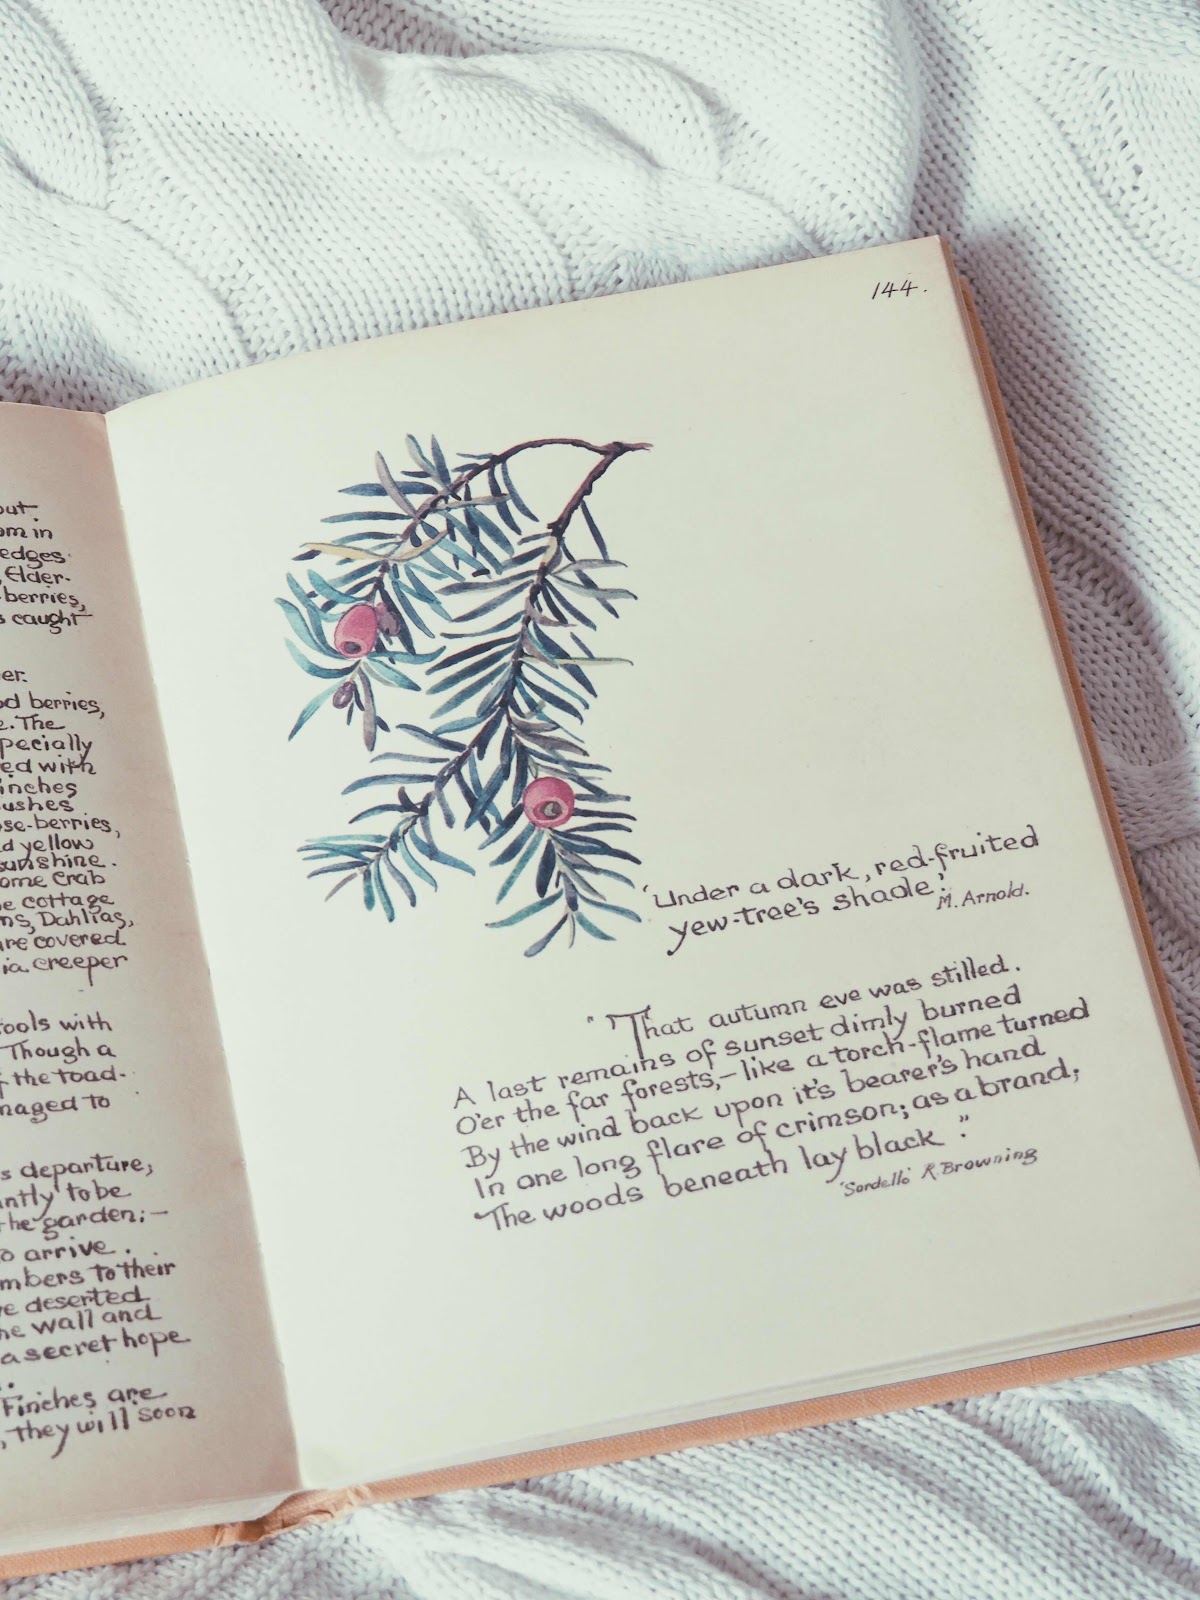 out
om in
edges
Elder-
berries,
caught
er.
od berries,
e. The
pecially
ed with
inches
ushes
se-berries,
d yellow
sunshine.
ome Crab
e cottage
ns, Dahlias,
are covered
ia creeper
ools with
Though a
f the toad-
naged to
s departure,
ntly to be
he garden;—
o arrive.
mbers to their
ve deserted
he wall and
a secret hope
Finches are
, they will soon
144.
'Under a dark, red-fruited
yew-tree's shade.'
M. Arnold.
"That autumn eve was stilled.
A last remains of sunset dimly burned
O'er the far forests,—like a torch-flame turned
By the wind back upon it's bearer's hand
In one long flare of crimson; as a brand,
The woods beneath lay black."
'Sordello' R. Browning